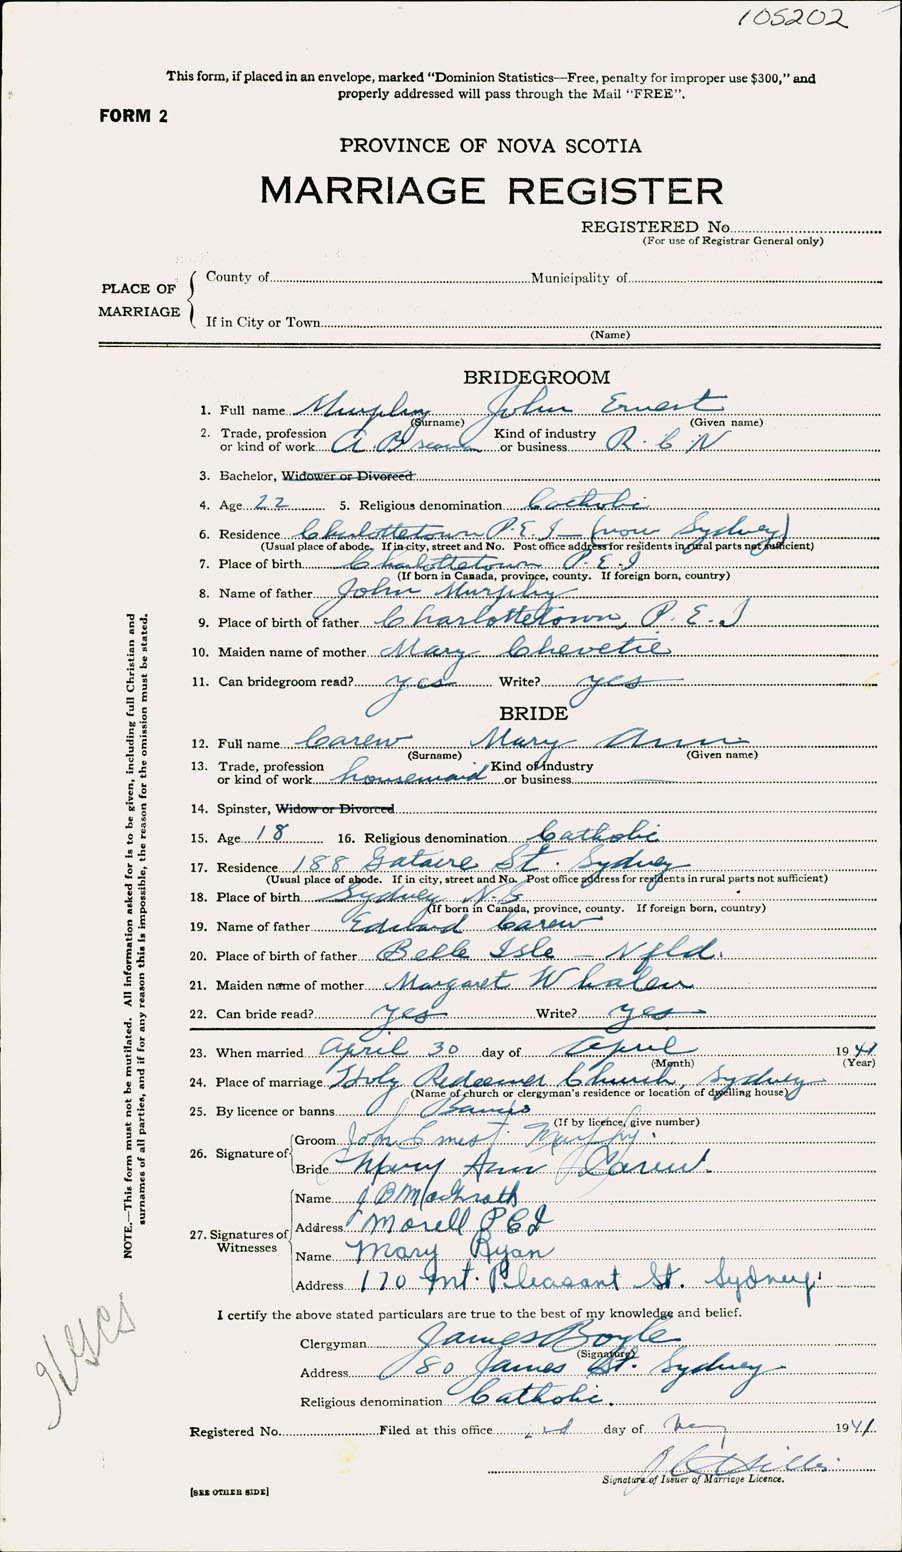 105202
This form, if placed in an envelope, marked "Dominion Statistics—Free, penalty for improper use $300," and
properly addressed will pass through the Mail "FREE".
FORM 2
PROVINCE OF NOVA SCOTIA
MARRIAGE REGISTER
REGISTERED No.
(For use of Registrar General only)
PLACE OF MARRIAGE
County of Municipality of
If in City or Town
(Name)
BRIDEGROOM
1. Full name Murphy John Ernest
(Surname) (Given name)
2. Trade, profession or kind of work A. B. Kind of industry or business R. C. N
3. Bachelor, Widower or Divorced
4. Age 22 5. Religious denomination Catholic
6. Residence Charlottetown P. E. I — (now Sydney)
(Usual place of abode. If in city, street and No. Post office address for residents in rural parts not sufficient)
7. Place of birth Charlottetown P. E. I
(If born in Canada, province, county. If foreign born, country)
8. Name of father John Murphy
9. Place of birth of father Charlottetown, P. E. I
10. Maiden name of mother Mary
11. Can bridegroom read? yes Write? yes
BRIDE
12. Full name Carew Mary Ann
(Surname) (Given name)
13. Trade, profession or kind of work housemaid Kind of industry or business —
14. Spinster, Widow or Divorced
15. Age 18 16. Religious denomination Catholic
17. Residence 188 St. Sydney
(Usual place of abode. If in city, street and No. Post office address for residents in rural parts not sufficient)
18. Place of birth Sydney N. S
(If born in Canada, province, county. If foreign born, country)
19. Name of father Edward Carew
20. Place of birth of father Belle Isle — Nfld.
21. Maiden name of mother Margaret Whalen
22. Can bride read? yes Write? yes
23. When married April 30 day of April 1941
(Month) (Year)
24. Place of marriage Holy Redeemer Church, Sydney
(Name of church or clergyman's residence or location of dwelling house)
25. By licence or banns Banns
(If by licence, give number)
26. Signature of
Groom John Ernest Murphy.
Bride Mary Ann Carew.
27. Signatures of Witnesses
Name J B
Address Morell P E I
Name Mary Ryan
Address 170 Mt. Pleasant St. Sydney.
I certify the above stated particulars are true to the best of my knowledge and belief.
Clergyman James Boyle
(Signature)
Address 80 James St. Sydney
Religious denomination Catholic.
Registered No. Filed at this office 2nd day of May 1941
Signature of Issuer of Marriage Licence.
[SEE OTHER SIDE]
NOTE.—This form must not be mutilated. All information asked for is to be given, including full Christian and
surnames of all parties, and if for any reason this is impossible, the reason for the omission must be stated.